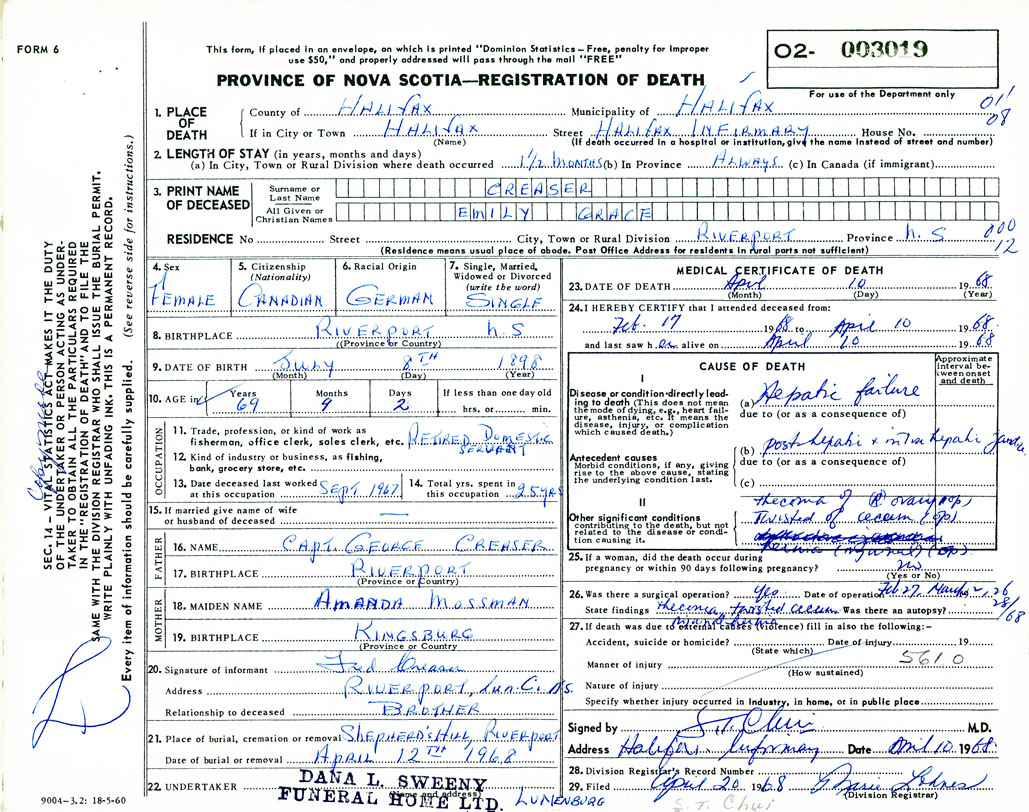 FORM 6
This form, if placed in an envelope, on which is printed "Dominion Statistics – Free, penalty for improper
use $50," and properly addressed will pass through the mail "FREE"
PROVINCE OF NOVA SCOTIA—REGISTRATION OF DEATH
O2- 003019
For use of the Department only
011
08
1. PLACE OF DEATH
County of HALIFAX Municipality of HALIFAX
If in City or Town HALIFAX Street HALIFAX INFIRMARY House No.
(Name) (If death occurred in a hospital or institution, give the name instead of street and number)
2. LENGTH OF STAY (in years, months and days)
(a) In City, Town or Rural Division where death occurred 1½ MONTHS (b) In Province ALWAYS (c) In Canada (if immigrant)
3. PRINT NAME OF DECEASED
Surname or Last Name CREASER
All Given or Christian Names EMILY GRACE
RESIDENCE No Street City, Town or Rural Division RIVERPORT Province N. S
000
12
(Residence means usual place of abode. Post Office Address for residents in rural parts not sufficient)
4. Sex
FEMALE
5. Citizenship
(Nationality)
CANADIAN
6. Racial Origin
GERMAN
7. Single, Married,
Widowed or Divorced
(write the word)
SINGLE
8. BIRTHPLACE RIVERPORT N. S
(Province or Country)
9. DATE OF BIRTH JULY 8TH 1898
(Month) (Day) (Year)
10. AGE in
Years 69
Months 9
Days 2
If less than one day old
hrs. or min.
OCCUPATION
11. Trade, profession, or kind of work as
fisherman, office clerk, sales clerk, etc. RETIRED DOMESTIC
SERVANT
12. Kind of industry or business, as fishing,
bank, grocery store, etc.
13. Date deceased last worked
at this occupation SEPT 1967
14. Total yrs. spent in
this occupation 25 YRS
15. If married give name of wife
or husband of deceased —
FATHER
16. NAME CAPT. GEORGE CREASER
17. BIRTHPLACE RIVERPORT
(Province or Country)
MOTHER
18. MAIDEN NAME AMANDA MOSSMAN
19. BIRTHPLACE KINGSBURG
(Province or Country
20. Signature of informant Fred Creaser
Address RIVERPORT, Lun. Co. N.S.
Relationship to deceased BROTHER
21. Place of burial, cremation or removal SHEPHERD'S HILL, RIVERPORT
Date of burial or removal APRIL 12TH 1968
22. UNDERTAKER DANA L. SWEENY
(Name and address)
FUNERAL HOME LTD. LUNENBURG
MEDICAL CERTIFICATE OF DEATH
23. DATE OF DEATH April 10 1968
(Month) (Day) (Year)
24. I HEREBY CERTIFY that I attended deceased from:
Feb. 17 1968 to April 10 1968
and last saw her alive on April 10 1968
CAUSE OF DEATH
Approximate
interval be-
tween onset
and death
I
Disease or condition directly lead-
ing to death (This does not mean
the mode of dying, e.g., heart fail-
ure, asthenia, etc. It means the
disease, injury, or complication
which caused death.)
(a) Hepatic failure
due to (or as a consequence of)
(b) post hepatic + intra hepatic
due to (or as a consequence of)
(c)
Antecedent causes
Morbid conditions, if any, giving
rise to the above cause, stating
the underlying condition last.
II
Other significant conditions
contributing to the death, but not
related to the disease or condi-
tion causing it.
thecoma of (R) ovary (op)
Twisted of cecum (op)
hernia (inguinal) (op)
25. If a woman, did the death occur during
pregnancy or within 90 days following pregnancy? no
(Yes or No)
26. Was there a surgical operation? yes Date of operation Feb 27, March 2, 26
28/68
State findings thecoma, twisted cecum Was there an autopsy?
inguinal hernia
27. If death was due to external causes (violence) fill in also the following:-
Accident, suicide or homicide? Date of injury 19
(State which)
Manner of injury 5610
(How sustained)
Nature of injury
Specify whether injury occurred in Industry, in home, or in public place
Signed by S. T. Chui M.D.
Address Halifax Infirmary Date April 10 1968
28. Division Registrar's Record Number
29. Filed April 20 1968
(Division Registrar)
S. T. Chui
SEC. 14 – VITAL STATISTICS ACT MAKES IT THE DUTY
OF THE UNDERTAKER OR PERSON ACTING AS UNDER-
TAKER TO OBTAIN ALL THE PARTICULARS REQUIRED
IN THE "REGISTRATION OF DEATH" AND TO FILE THE
SAME WITH THE DIVISION REGISTRAR WHO SHALL ISSUE THE BURIAL PERMIT.
WRITE PLAINLY WITH UNFADING INK. THIS IS A PERMANENT RECORD.
Every item of information should be carefully supplied. (See reverse side for instructions.)
9004-3.2: 18-5-60